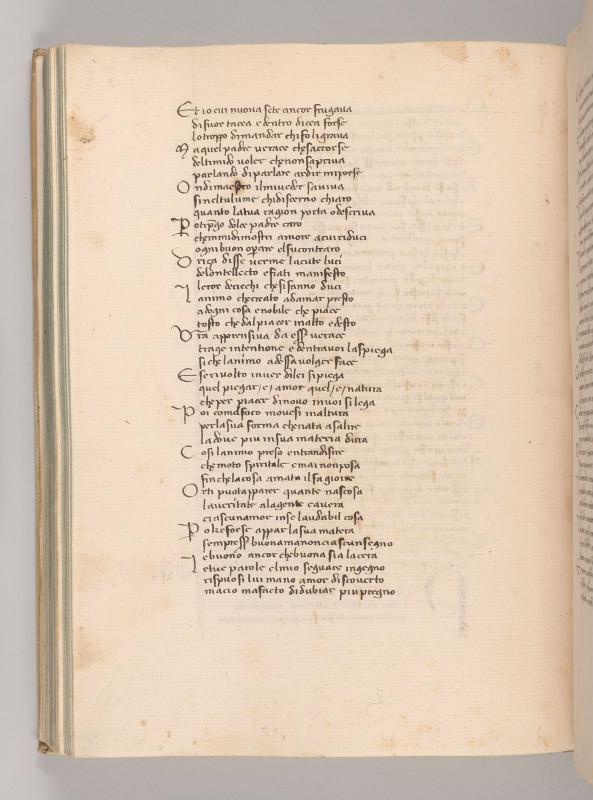 Et io cui nuova sete ancor frugava
difuor tacea e dentro dicea forse
lo troppo dimandar chi fo li grava
Ma quel padre verace che saccorse
del timido voler che non sapriva
parlando di parlare ardir mi porse
Ondi maestro il mi veder saviva
si nel tu lume chi discerno chiaro
quanto la tua ragion porta o descriva
Pero tprego dolce padre caro
che mmi dimostri amore a cui riduci
ogni buon operare el su contraro
Driça disse ver me lacute luci
delo ntellecto e fiati manifesto
leror de ciechi che si fanno duci
Lanimo che creato adamar presto
ad ogni cosa e nobile che piace
tosto che dal piacer in atto e desto
Vra apprensiva da esser verace
trage intentione e dentra voi la spiega
si che lanimo ad essa volger face
E se rivolto inver di lei si piega
quel piegar /e/ amor quel /e/ natura
che per piacer di novo in voi si lega
Poi comel foco movesi in altura
per la sua forma che nata a salire
la dove piu in sua materia dura
Cosi lanimo preso entra ndisire
che moto spiritale e mai non posa
fin che la cosa amata il fa gioire
Or ti puot apparer quante nascosa
la veritate ala gente cavera
ciascun amor in se laudabil cosa
Po ke forse appar la sua matera
sempresser buona ma non ciascun segno
e buono ancor che buona sia la cera
Le tue parole el mio seguace ingegno
rispuosi lui mano amor discoverto
ma cio ma facto di dubiar piu pregno